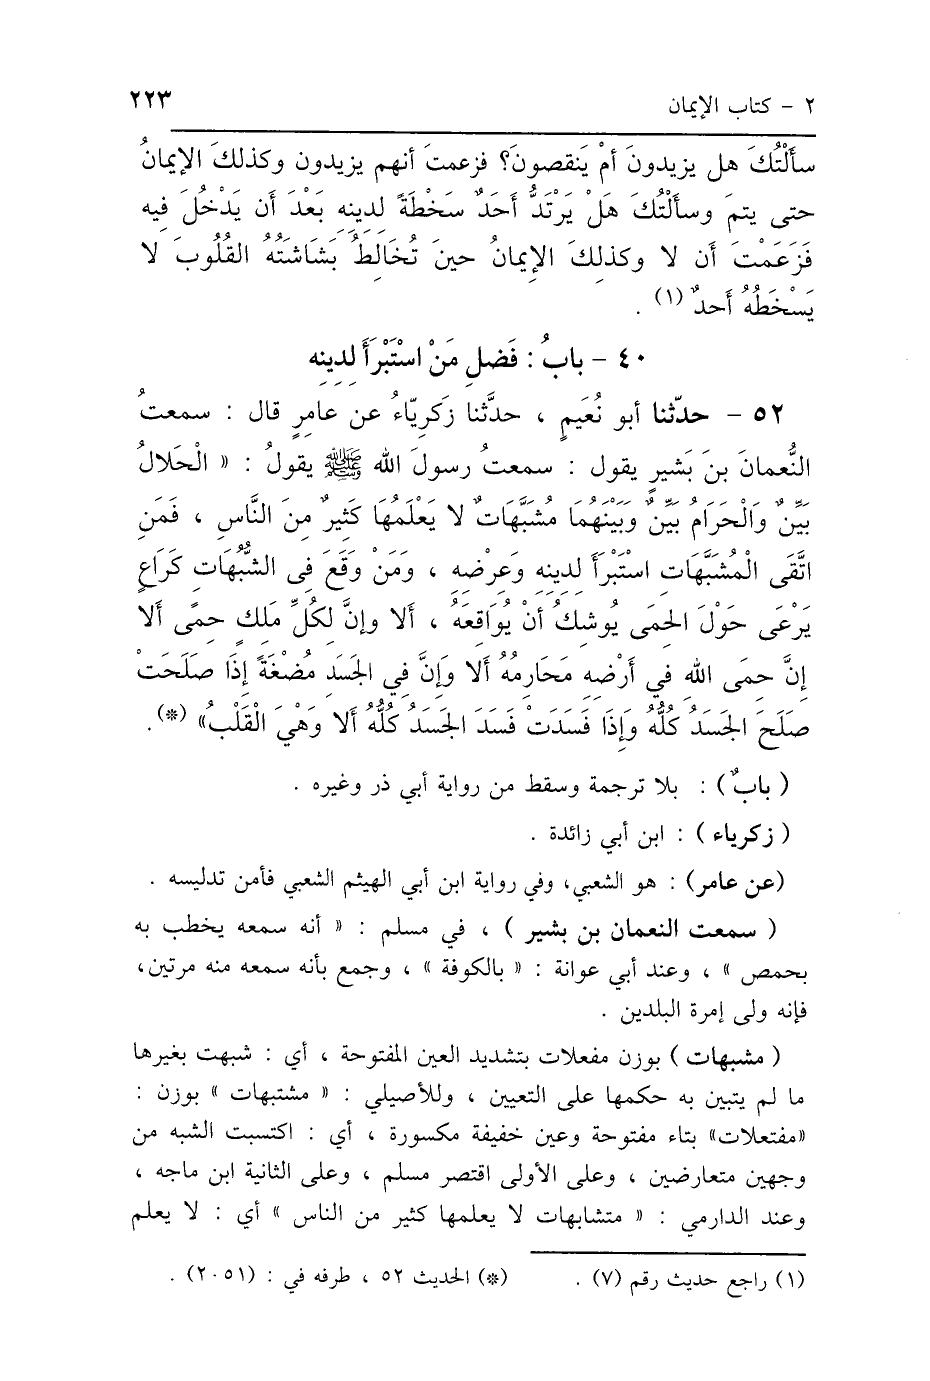 ٢ - كتاب الإيمان ٢٢٣
سأَلْتُكَ هل يزيدونَ أمْ يَنقصونَ؟ فزعمتَ أنهم يزيدون وكذلكَ الإيمانُ
حتى يتمَ وسألْتُكَ هَلْ يَرْتَدُّ أَحَدٌ سَخْطَةً لدينِهِ بَعْدَ أن يَدْخُلَ فِيهِ
فَزَعَمْتَ أن لا وكذلِكَ الإيمانُ حينَ تُخَالِطُ بَشَاشَتُهُ القُلُوبَ لا
يَسْخَطُهُ أَحدٌ (١) .
٤٠ - بابُ : فَضلِ مَنْ اسْتَبْرَأَ لدِينِهِ
٥٢ - حدّثنا أبو نُعَيمٍ ، حدَّثنا زَكَرِيّاءُ عن عامرٍ قال : سمعتُ
النُّعمانَ بنَ بَشيرٍ يقول : سمعتُ رسولَ الله ﷺ يقولُ : « الْحَلالُ
بَيِّنٌ وَالْحَرَامُ بَيِّنٌ وَبَيْنَهُمَا مُشَبَّهَاتٌ لا يَعْلَمُهَا كَثِيرٌ مِنَ النَّاسِ ، فَمَنِ
اتَّقَى الْمُشَبَّهَاتِ اسْتَبْرَأَ لدِينِهِ وَعِرْضِهِ ، وَمَنْ وَقَعَ فِى الشُّبُهَاتِ كَرَاعٍ
يَرْعَى حَوْلَ الحِمَى يُوشكُ أنْ يُوَاقِعَهُ ، ألا وإنَّ لكُلِّ مَلكٍ حِمًى ألا
إنَّ حِمَى اللهِ في أرْضِهِ مَحَارِمُهُ ألا وَإنَّ فِي الجَسَدِ مُضْغَةً إذَا صَلَحَتْ
صَلَحَ الجَسَدُ كُلُّهُ وَإذَا فَسَدَتْ فَسَدَ الجَسَدُ كُلُّهُ ألا وَهْيَ الْقَلْبُ» (*) .
( بابٌ ) : بلا ترجمة وسقط من رواية أبي ذر وغيره .
( زكرياء ) : ابن أبي زائدة .
(عن عامر) : هو الشعبي، وفي رواية ابن أبي الهيثم الشعبي فأمن تدليسه .
( سمعت النعمان بن بشير ) ، في مسلم : « أنه سمعه يخطب به
بحمص » ، وعند أبي عوانة : « بالكوفة » ، وجمع بأنه سمعه منه مرتين،
فإنه ولى إمرة البلدين .
( مشبهات ) بوزن مفعلات بتشديد العين المفتوحة ، أي : شبهت بغيرها
ما لم يتبين به حكمها على التعيين ، وللأصيلي : « مشتبهات » بوزن :
«مفتعلات» بتاء مفتوحة وعين خفيفة مكسورة ، أي : اكتسبت الشبه من
وجهين متعارضين ، وعلى الأولى اقتصر مسلم ، وعلى الثانية ابن ماجه ،
وعند الدارمي : « متشابهات لا يعلمها كثير من الناس » أي : لا يعلم
(١) راجع حديث رقم (٧) . (*) الحديث ٥٢ ، طرفه في : (٢٠٥١) .